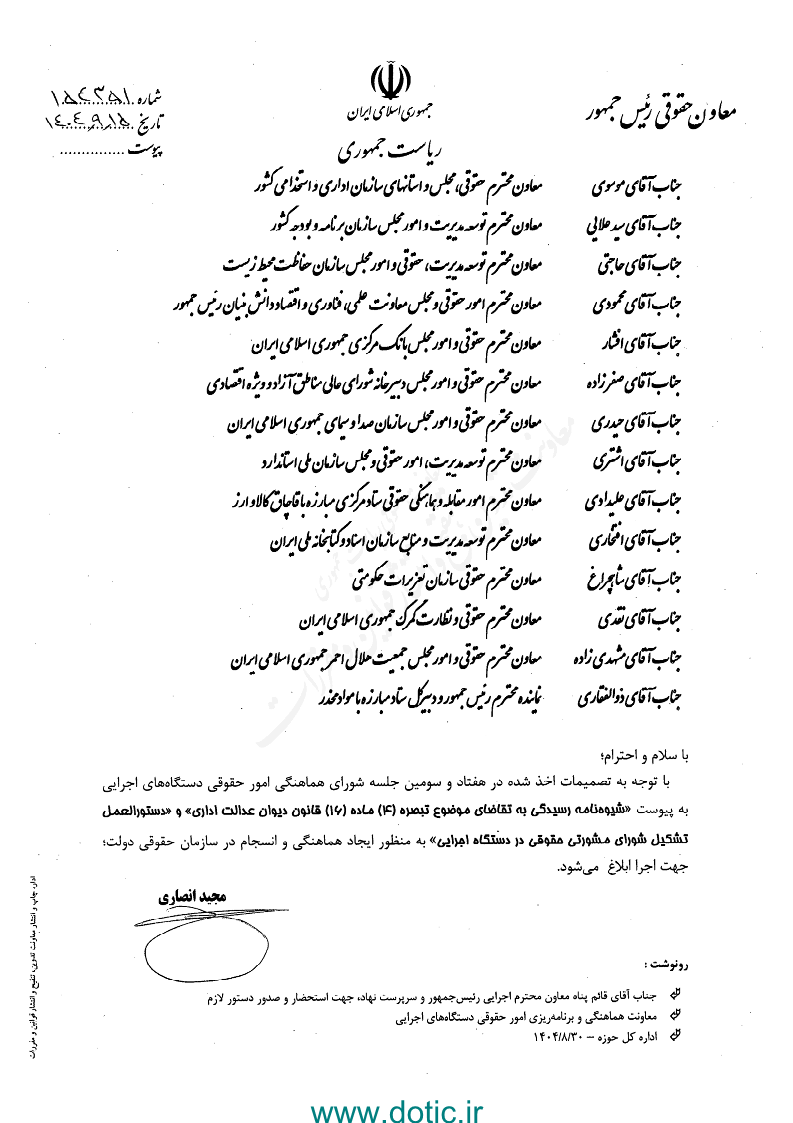 شماره ۱۵۲۳۵۱
تاریخ ۱۴۰۴،۹،۱۵
پیوست ................
جمهوری اسلامی ایران
ریاست جمهوری
معاون حقوقی رئیس جمهور
جناب آقای موسوی معاون محترم حقوقی، مجلس و استانهای سازمان اداری و استخدامی کشور
جناب آقای سید علایی معاون محترم توسعه مدیریت و امور مجلس سازمان برنامه و بودجه کشور
جناب آقای حاجتی معاون محترم توسعه مدیریت، حقوقی و امور مجلس سازمان حفاظت محیط زیست
جناب آقای محمودی معاون محترم امور حقوقی و مجلس معاونت علمی، فناوری و اقتصاد دانش بنیان رئیس جمهور
جناب آقای افشار معاون محترم حقوقی و امور مجلس بانک مرکزی جمهوری اسلامی ایران
جناب آقای صفرزاده معاون محترم حقوقی و امور مجلس دبیرخانه شورای عالی مناطق آزاد و ویژه اقتصادی
جناب آقای حیدری معاون محترم حقوقی و امور مجلس سازمان صدا و سیمای جمهوری اسلامی ایران
جناب آقای اشتری معاون محترم توسعه مدیریت، امور حقوقی و مجلس سازمان ملی استاندارد
جناب آقای علیدادی معاون محترم امور مقابله و هماهنگی حقوقی ستاد مرکزی مبارزه با قاچاق کالا و ارز
جناب آقای افتخاری معاون محترم توسعه مدیریت و منابع سازمان اسناد و کتابخانه ملی ایران
جناب آقای شاهچراغ معاون محترم حقوقی سازمان تعزیرات حکومتی
جناب آقای نقدی معاون محترم حقوقی و نظارت گمرک جمهوری اسلامی ایران
جناب آقای مشهدی زاده معاون محترم حقوقی و امور مجلس جمعیت هلال احمر جمهوری اسلامی ایران
جناب آقای ذوالفقاری نماینده محترم رئیس جمهور و دبیرکل ستاد مبارزه با مواد مخدر
با سلام و احترام؛
با توجه به تصمیمات اخذ شده در هفتاد و سومین جلسه شورای هماهنگی امور حقوقی دستگاه‌های اجرایی
به پیوست «شیوه‌نامه رسیدگی به تقاضای موضوع تبصره (۴) ماده (۱۶) قانون دیوان عدالت اداری» و «دستورالعمل
تشکیل شورای مشورتی حقوقی در دستگاه اجرایی» به منظور ایجاد هماهنگی و انسجام در سازمان حقوقی دولت؛
جهت اجرا ابلاغ می‌شود.
مجید انصاری
رونوشت :
جناب آقای قائم پناه معاون محترم اجرایی رئیس‌جمهور و سرپرست نهاد، جهت استحضار و صدور دستور لازم
معاونت هماهنگی و برنامه‌ریزی امور حقوقی دستگاه‌های اجرایی
اداره کل حوزه – ۱۴۰۴/۸/۳۰
اداره چاپ و انتشار معاونت تدوین، تنقیح و انتشار قوانین و مقررات
www.dotic.ir